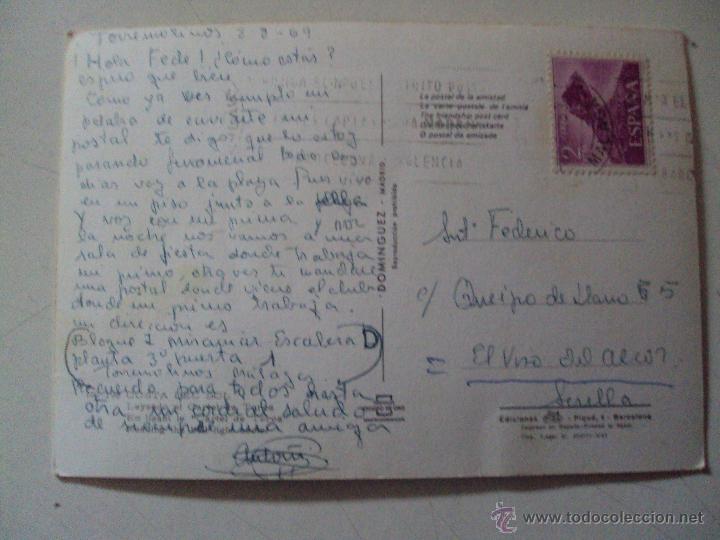 Torremolinos 8-8-69
¡Hola Fede! ¿Cómo estás?
espero que bien
Como ya ves cumplo mi
palabra de enviarte mi
postal te digo que lo estoy
pasando fenomenal todo los
dias voy a la playa Pues vivo
en un piso junto a la playa
Y voy con mi prima y por
la noche nos vamos a una
sala de fiestas donde trabaja
mi primo
una postal donde viene el club
donde mi primo trabaja.
mi dirección es
Bloque 1 Miramar Escalera D
planta 3º puerta 1
Torremolinos Málaga
Recuerdo para todos hasta
otra un cordial saludo
de siempre una amiga
Antoñi
La postal de la amistad
La carte postale de l'amitié
The friendship post card
O postal da amizade
DOMINGUEZ - MADRID
Reproducción prohibida
2
ESPAÑA
VALENCIA
Federico
c/ Queipo de Llano 5
El Viso del Alcor
Sevilla
COSTA DEL SOL
Ediciones - Piqué, - Barcelona
www.todocoleccion.net